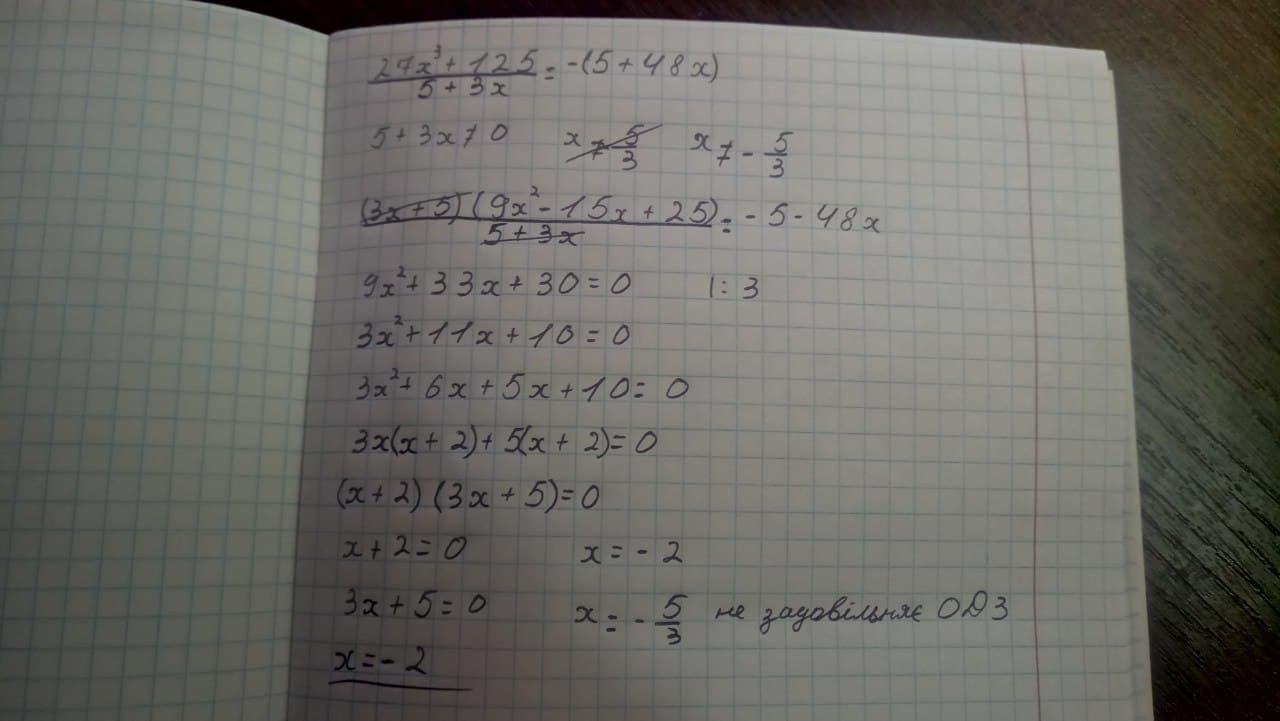 27x³ + 125 / 5 + 3x = -(5 + 48x)
5 + 3x ≠ 0 x ≠ 5/3 x ≠ - 5/3
(3x + 5) (9x² - 15x + 25) / 5 + 3x = - 5 - 48x
9x² + 33x + 30 = 0 | : 3
3x² + 11x + 10 = 0
3x² + 6x + 5x + 10 = 0
3x(x + 2) + 5(x + 2) = 0
(x + 2) (3x + 5) = 0
x + 2 = 0 x = - 2
3x + 5 = 0 x = - 5/3 не задовільняє ОДЗ
x = - 2